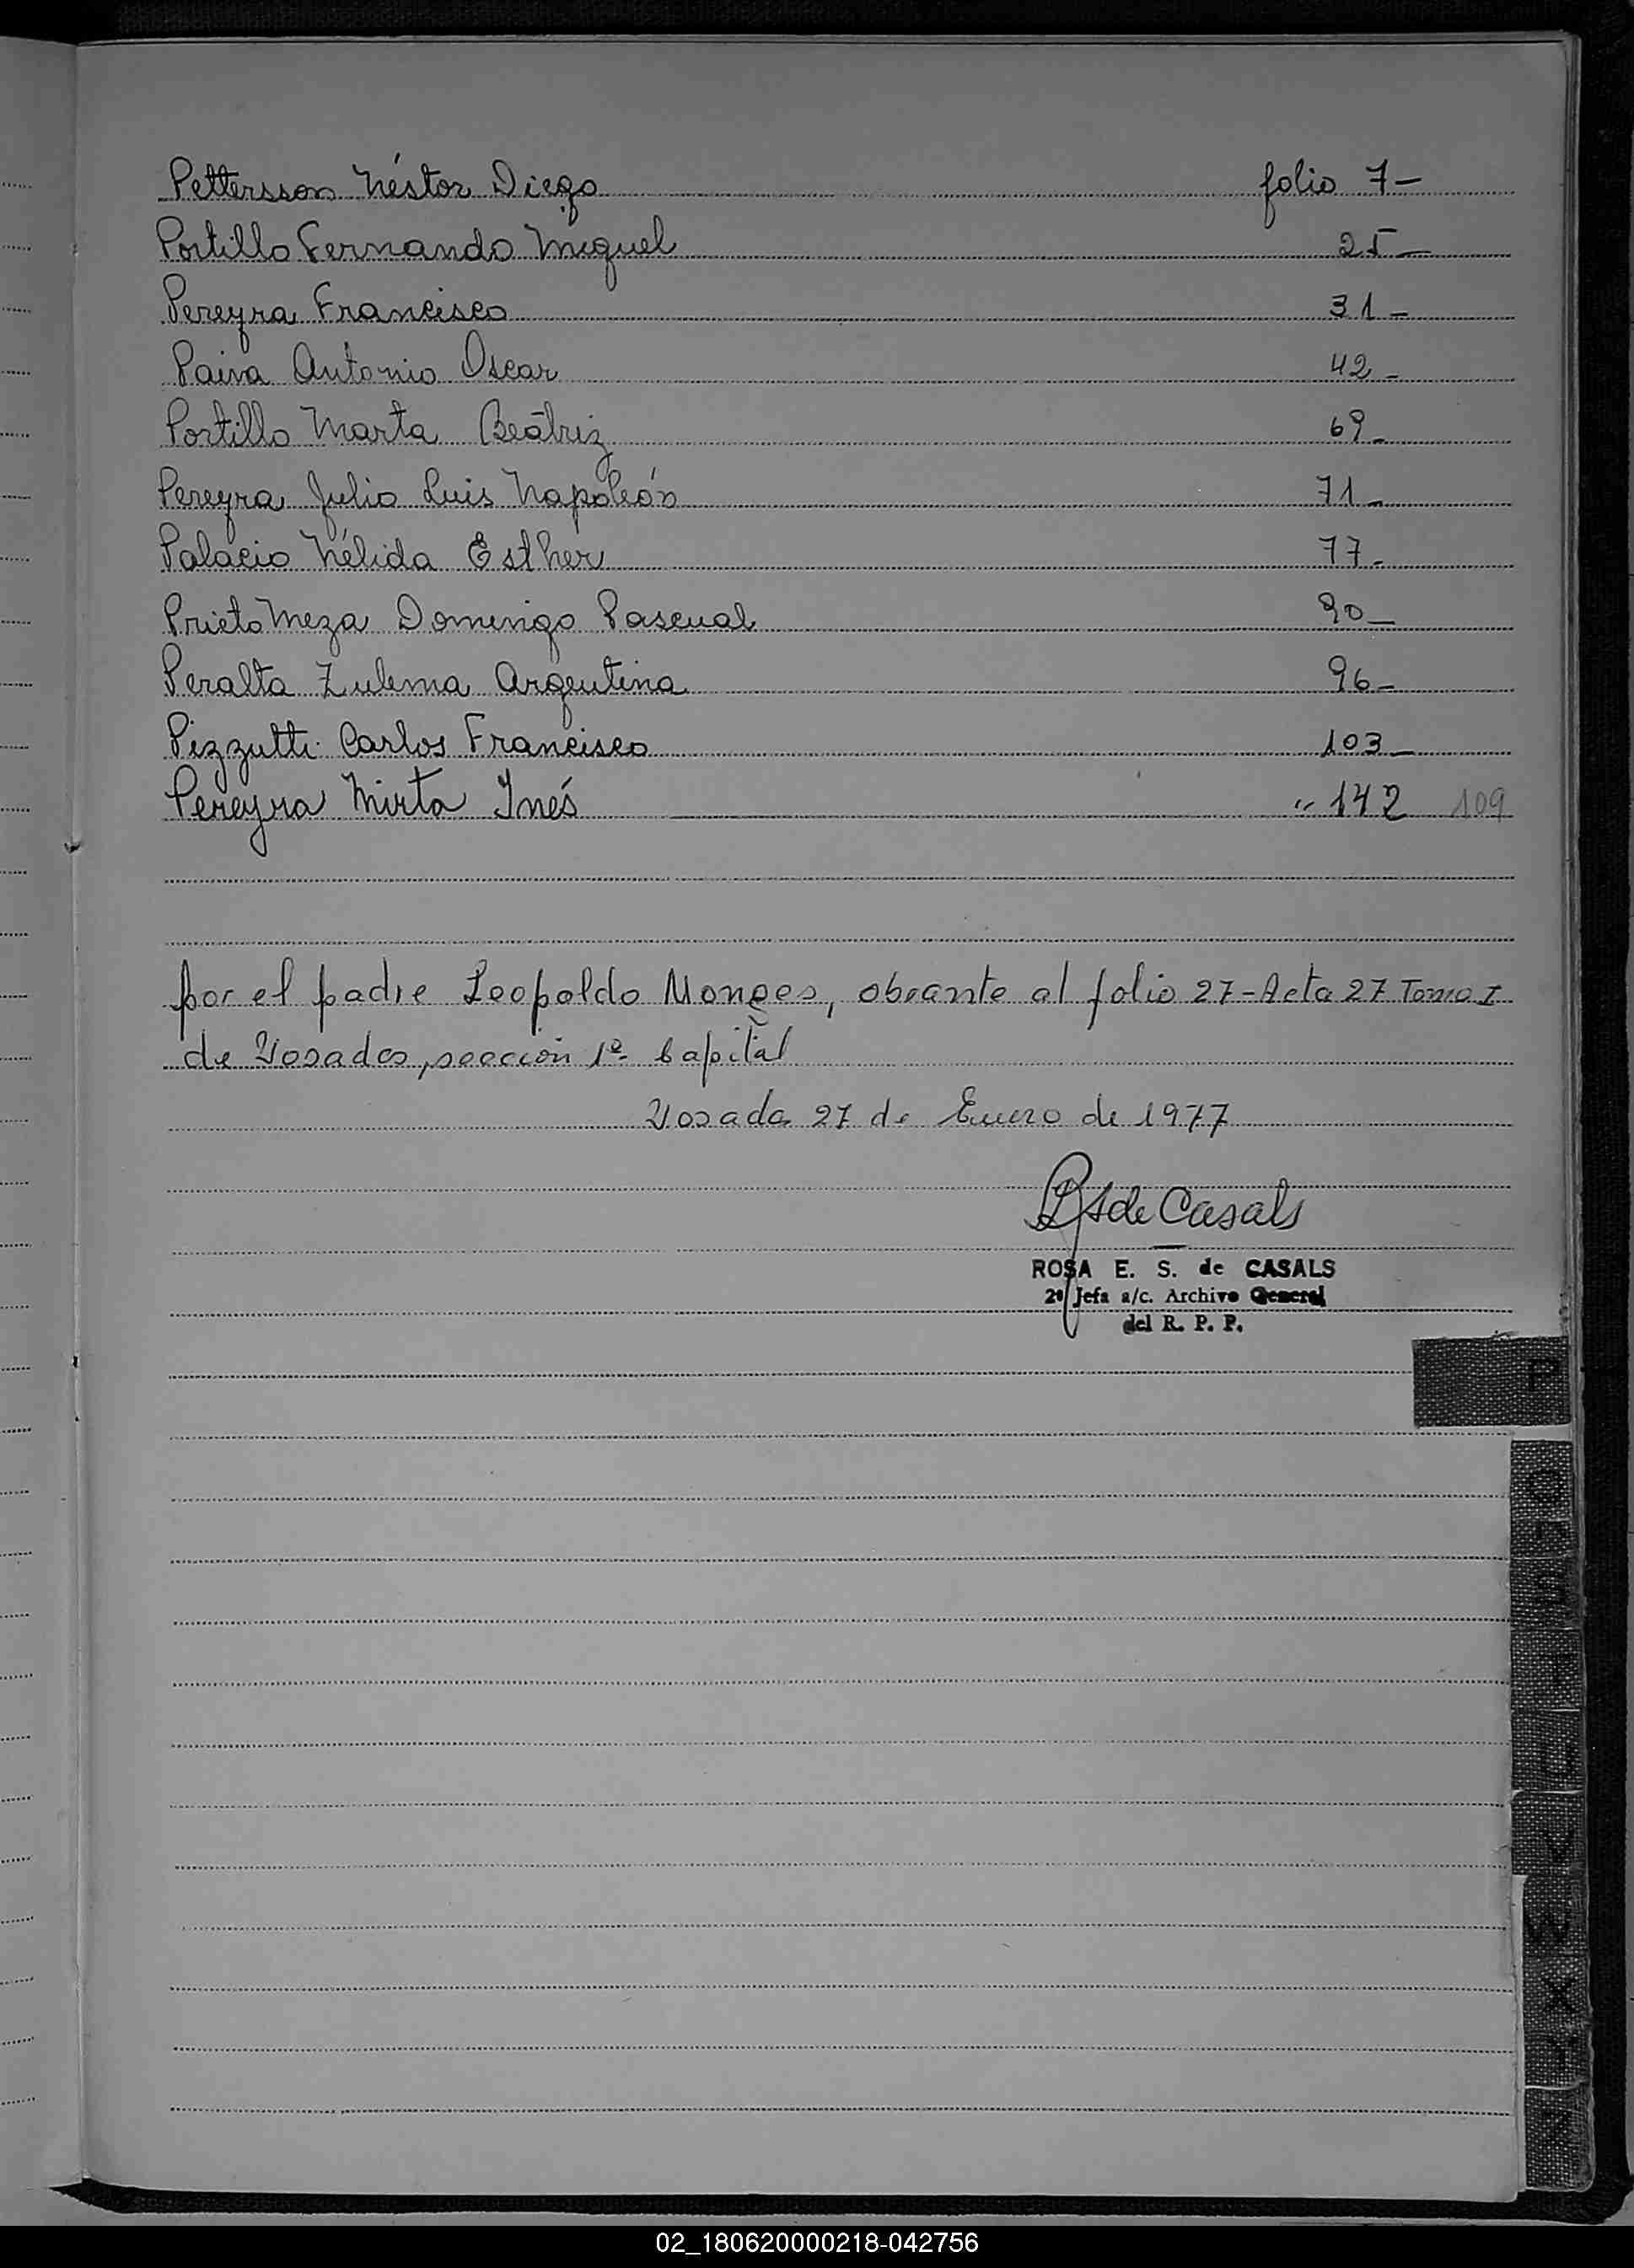 Pettersson Néstor Diego folio 7-
Portillo Fernando Miguel 25-
Pereyra Francisco 31-
Paiva Antonio Oscar 42-
Portillo Marta Beátriz 69-
Pereyra Julio Luis Napoleón 71-
Palacio Nélida Esther 77-
Prieto Meza Domingo Pascual 90-
Peralta Zulema Argentina 96-
Pizzutti Carlos Francisco 103-
Pereyra Mirta Inés " 142 109
por el padre Leopoldo Monges, obrante al folio 27-Acta 27 Tomo I
de Posadas, sección 1ª Capital
Posadas 27 de Enero de 1977
de Casals
ROSA E. S. de CASALS
2ª Jefa a/c. Archivo General
del R. P. P.
P
Q
R
S
T
U
V
W
X
Y
Z
02_180620000218-042756